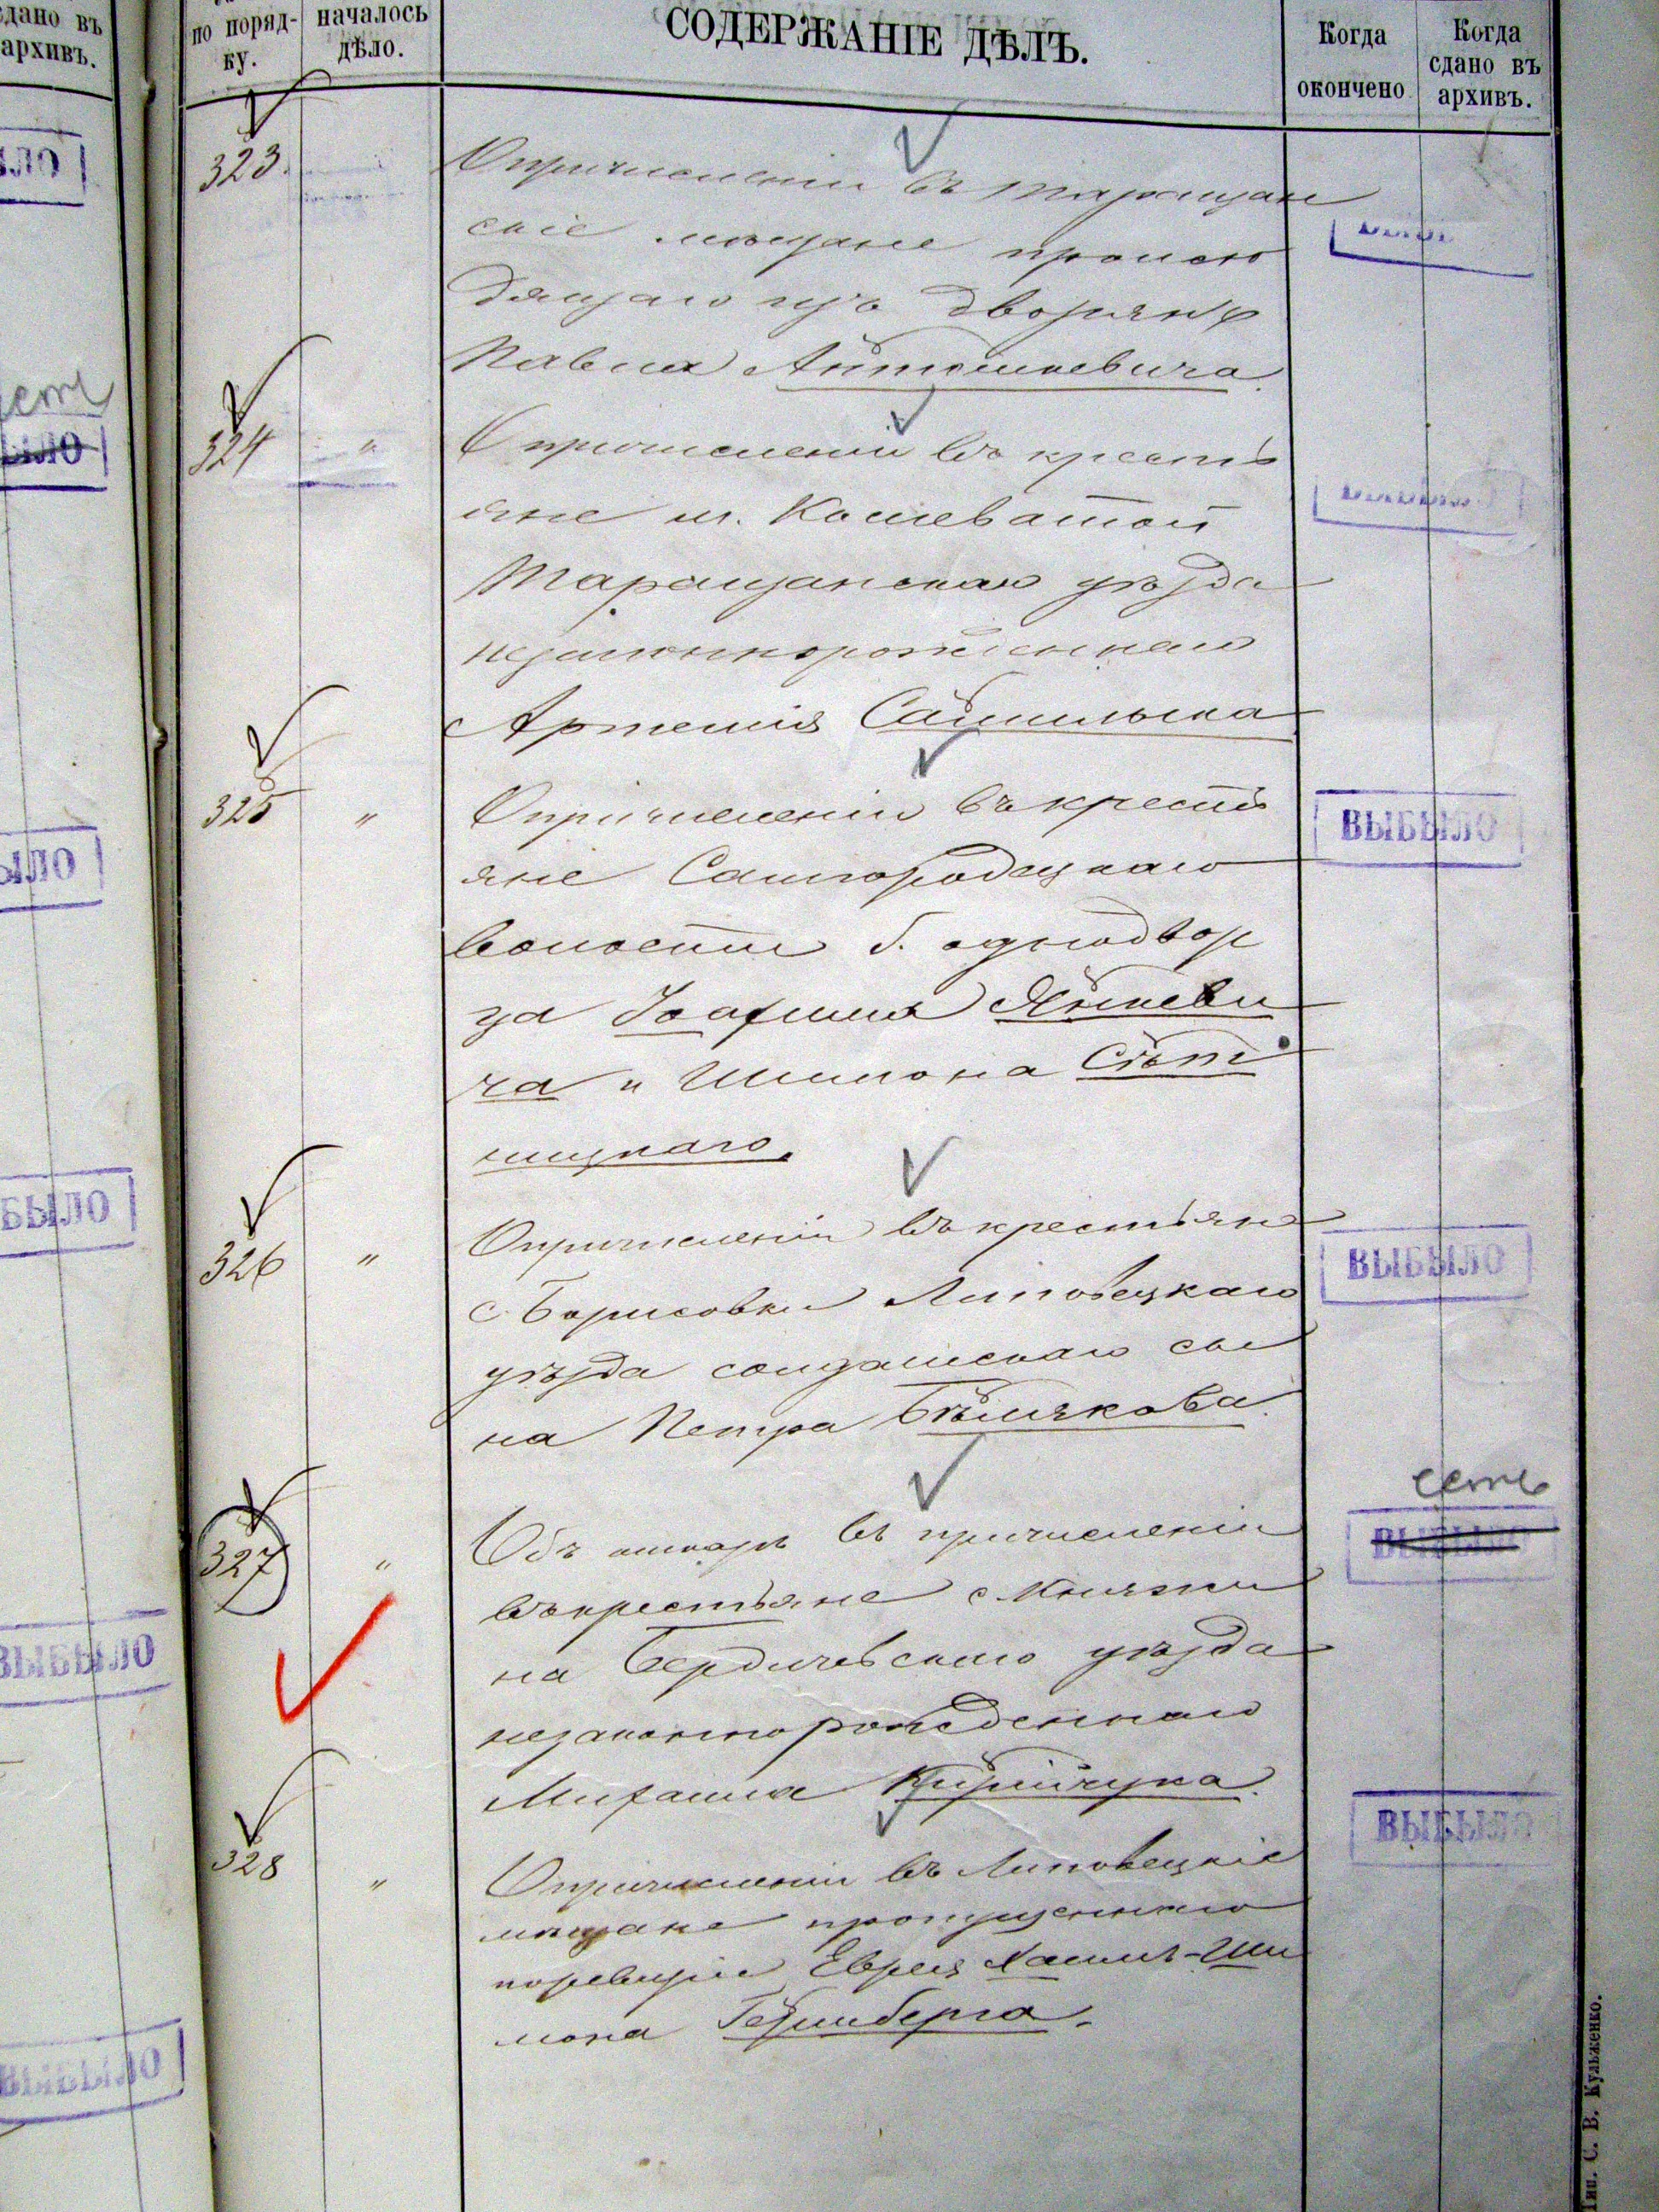 сдано въ
архивъ.
по поряд-
ку.
началось
дѣло.
СОДЕРЖАНІЕ ДѢЛЪ.
Когда
окончено
Когда
сдано въ
архивъ.
323.
О причисленіи въ Таращан
скіе мѣщане происхо
дящаго изъ дворянъ
Павла Антошкевича.
324 "
О причисленіи въ кресть
яне м. Кошеватой
Таращанскаго уѣзда
незаконнорожденнаго
Артемія
325 "
О причисленіи въ кресть
яне Самгородецкаго
волости б. однодвор
ца Іоахима Янкеви
ча и Шимона Сѣт
ницкаго.
ВЫБЫЛО
326 "
О причисленіи въ крестьяне
с. Борисовки Липовецкаго
уѣзда солдатскаго сы
на Петра Бѣлякова.
ВЫБЫЛО
327 "
Объ отказѣ въ причисленіи
въ крестьяне с. Княжи
на Бердичевскаго уѣзда
незаконнорожденнаго
Михаила Кирийчука.
есть
ВЫБЫЛО
328 "
О причисленіи въ Липовецкіе
мѣщане пропущеннаго
по ревизіи Еврея Хаимъ-Ши
мона Гехинберга.
ВЫБЫЛО
Тип. С. В. Кульженко.